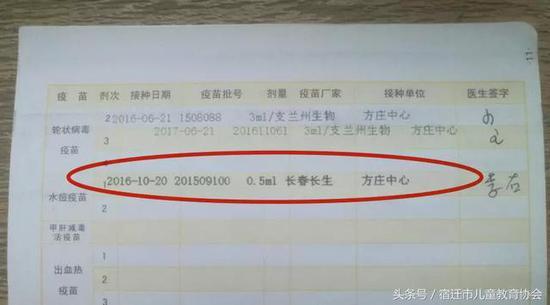 11
疫苗 剂次 接种日期 疫苗批号 剂量 疫苗厂家 接种单位 医生签字
2 2016-06-21 1508088 3ml/支 兰州生物 方庄中心
轮状病毒疫苗 3 2017-06-21 201611061 3ml/支 兰州生物 方庄中心
4
1 2016-10-20 201509100 0.5ml 长春长生 方庄中心 李右
水痘疫苗 2
甲肝减毒活疫苗
出血热疫苗 1
2
3
头条号 / 宿迁市儿童教育协会